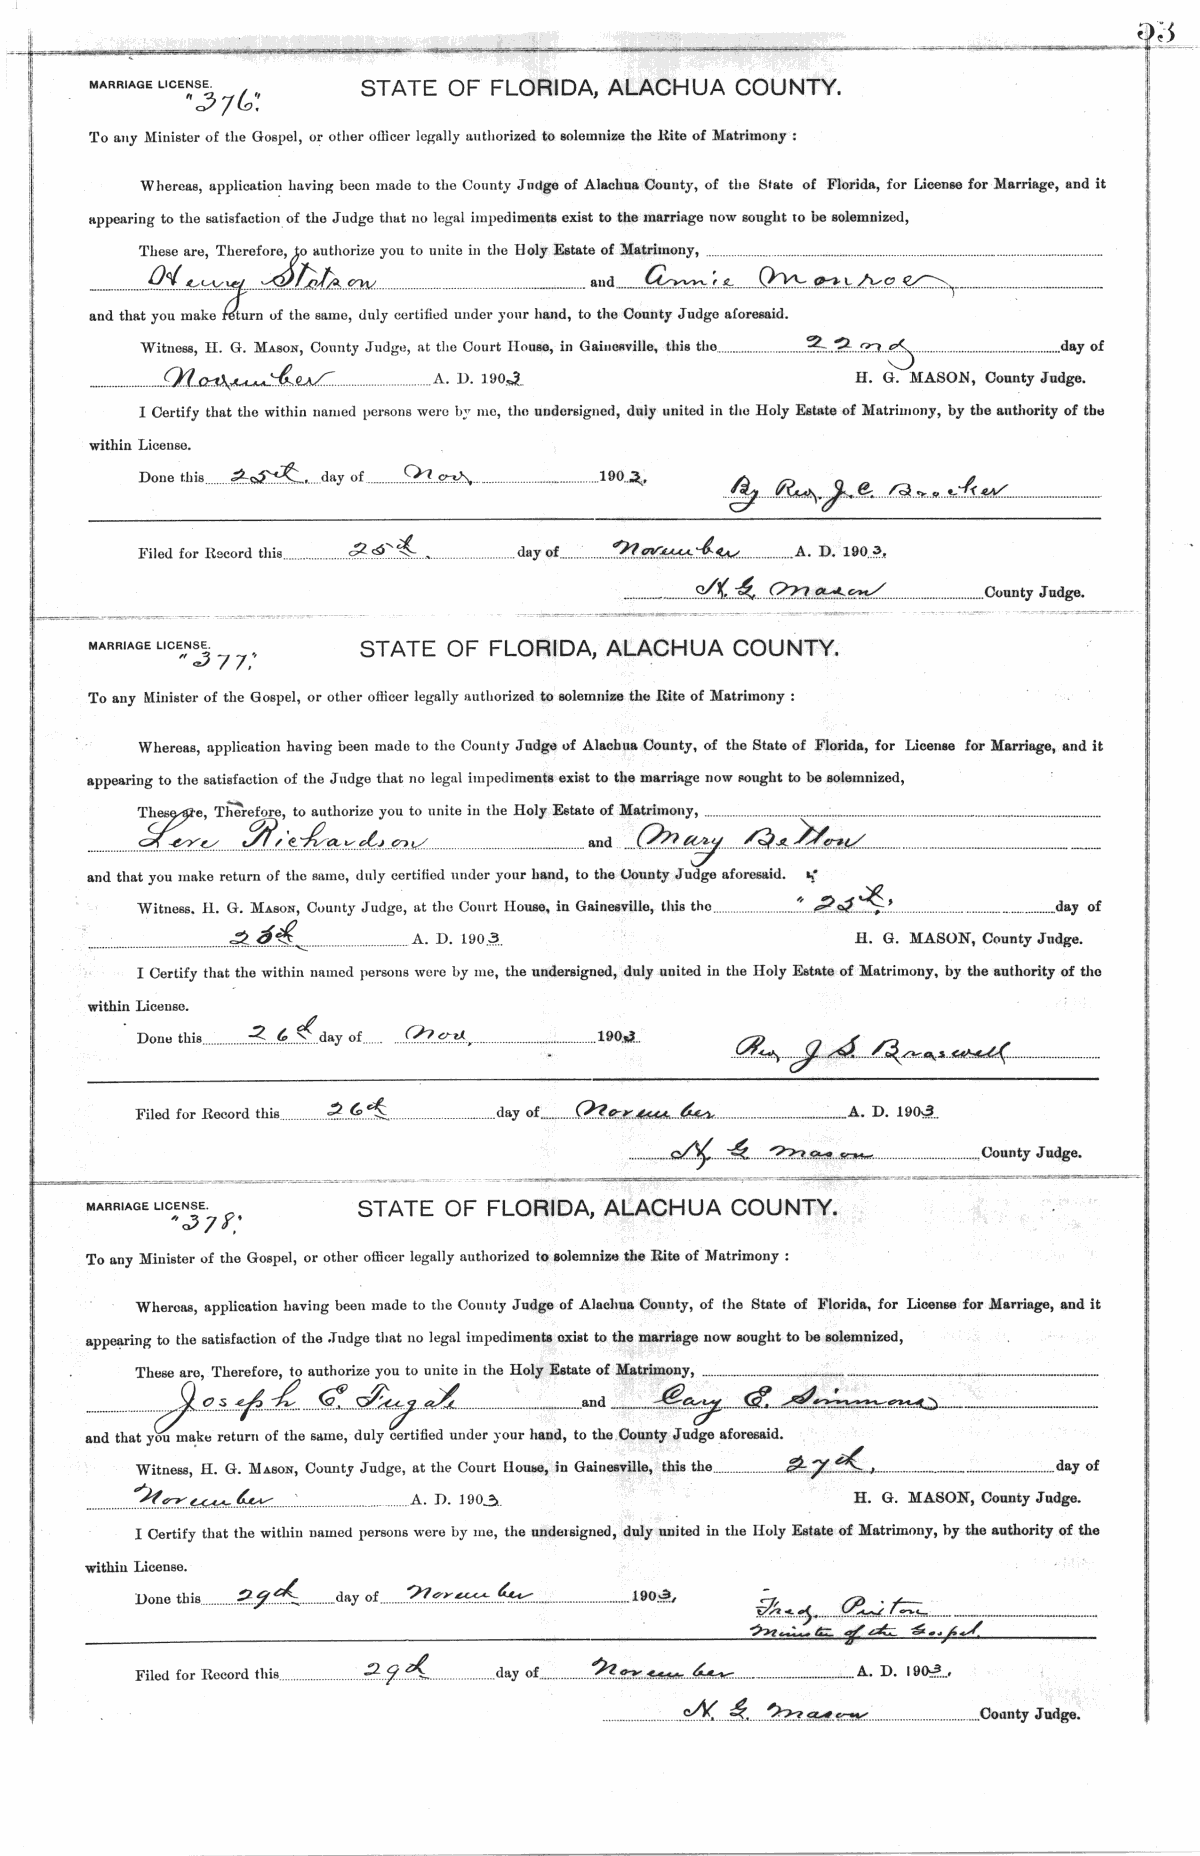 53
MARRIAGE LICENSE.
"376".
STATE OF FLORIDA, ALACHUA COUNTY.
To any Minister of the Gospel, or other officer legally authorized to solemnize the Rite of Matrimony :
Whereas, application having been made to the County Judge of Alachua County, of the State of Florida, for License for Marriage, and it
appearing to the satisfaction of the Judge that no legal impediments exist to the marriage now sought to be solemnized,
These are, Therefore, to authorize you to unite in the Holy Estate of Matrimony,
Henry Stetson and Annie Monroe
and that you make return of the same, duly certified under your hand, to the County Judge aforesaid.
Witness, H. G. MASON, County Judge, at the Court House, in Gainesville, this the 22nd day of
November A. D. 1903 H. G. MASON, County Judge.
I Certify that the within named persons were by me, the undersigned, duly united in the Holy Estate of Matrimony, by the authority of the
within License.
Done this 25th. day of Nov, 1903. By Rev. J. C. Brocker
Filed for Record this 25th. day of November A. D. 1903.
H. G. Mason County Judge.
MARRIAGE LICENSE.
"377".
STATE OF FLORIDA, ALACHUA COUNTY.
To any Minister of the Gospel, or other officer legally authorized to solemnize the Rite of Matrimony :
Whereas, application having been made to the County Judge of Alachua County, of the State of Florida, for License for Marriage, and it
appearing to the satisfaction of the Judge that no legal impediments exist to the marriage now sought to be solemnized,
These are, Therefore, to authorize you to unite in the Holy Estate of Matrimony,
Lere Richardson and Mary Betton
and that you make return of the same, duly certified under your hand, to the County Judge aforesaid.
Witness. H. G. MASON, County Judge, at the Court House, in Gainesville, this the "25th." day of
25th A. D. 1903 H. G. MASON, County Judge.
I Certify that the within named persons were by me, the undersigned, duly united in the Holy Estate of Matrimony, by the authority of the
within License.
Done this 26th day of Nov, 1903 Rev J. S. Braswell
Filed for Record this 26th day of November A. D. 1903
H. G. Mason County Judge.
MARRIAGE LICENSE.
"378".
STATE OF FLORIDA, ALACHUA COUNTY.
To any Minister of the Gospel, or other officer legally authorized to solemnize the Rite of Matrimony :
Whereas, application having been made to the County Judge of Alachua County, of the State of Florida, for License for Marriage, and it
appearing to the satisfaction of the Judge that no legal impediments exist to the marriage now sought to be solemnized,
These are, Therefore, to authorize you to unite in the Holy Estate of Matrimony,
Joseph E. Fugate and Cary E. Simmons
and that you make return of the same, duly certified under your hand, to the County Judge aforesaid.
Witness, H. G. MASON, County Judge, at the Court House, in Gainesville, this the 27th, day of
November A. D. 1903 H. G. MASON, County Judge.
I Certify that the within named persons were by me, the undersigned, duly united in the Holy Estate of Matrimony, by the authority of the
within License.
Done this 29th day of November 1903, Fred. Pixton
Minister of the Gospel.
Filed for Record this 29th day of November A. D. 1903.
H. G. Mason County Judge.